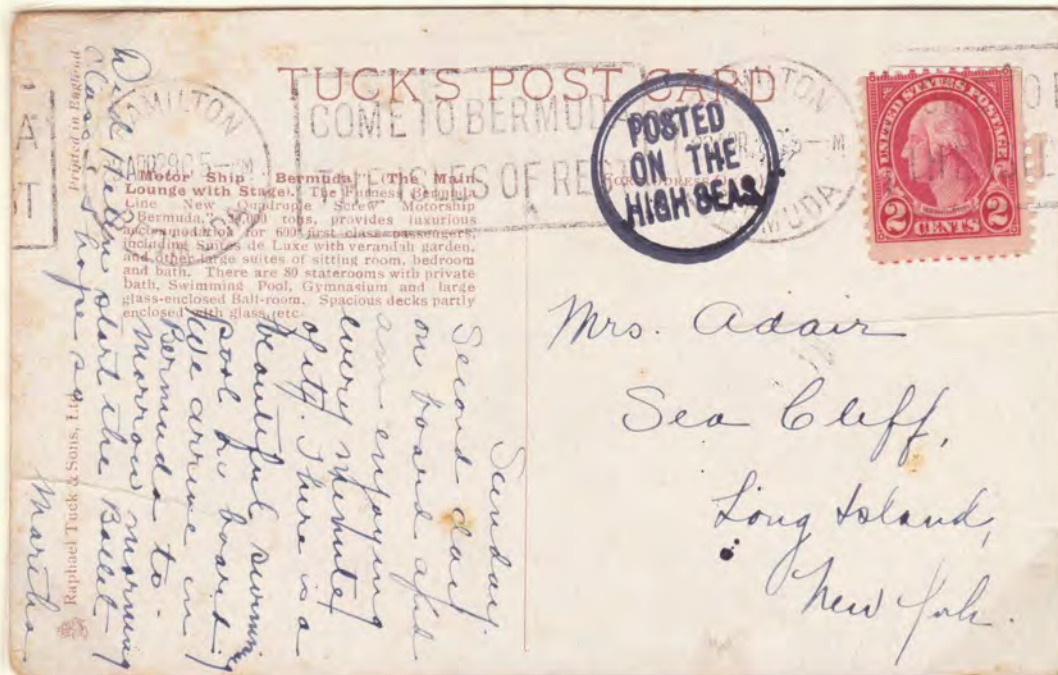 TUCK'S POST CARD
HAMILTON
COME TO BERMUDA
THE ISLES OF REST
BERMUDA
POSTED
ON THE
HIGH SEAS
UNITED STATES POSTAGE
2 CENTS 2
"Motor Ship "Bermuda" (The Main
Lounge with Stage). The Furness Bermuda
Line New Quadruple Screw Motorship
"Bermuda," 20,000 tons, provides luxurious
accommodation for 600 first class passengers,
including Suites de Luxe with verandah garden,
and other large suites of sitting room, bedroom
and bath. There are 80 staterooms with private
bath, Swimming Pool, Gymnasium and large
glass-enclosed Ball-room. Spacious decks partly
enclosed with glass, etc.
Sunday.
Second day
on board and
am enjoying
every minute
of it. There is a
beautiful swimming
pool on board
We arrive in
Bermuda to-
morrow morning
Did Helen start the Ballet
Class, I hope so.
Martha
Mrs. Adair
Sea Cliff,
Long Island,
New York.
Raphael Tuck & Sons, Ltd.
Printed in England